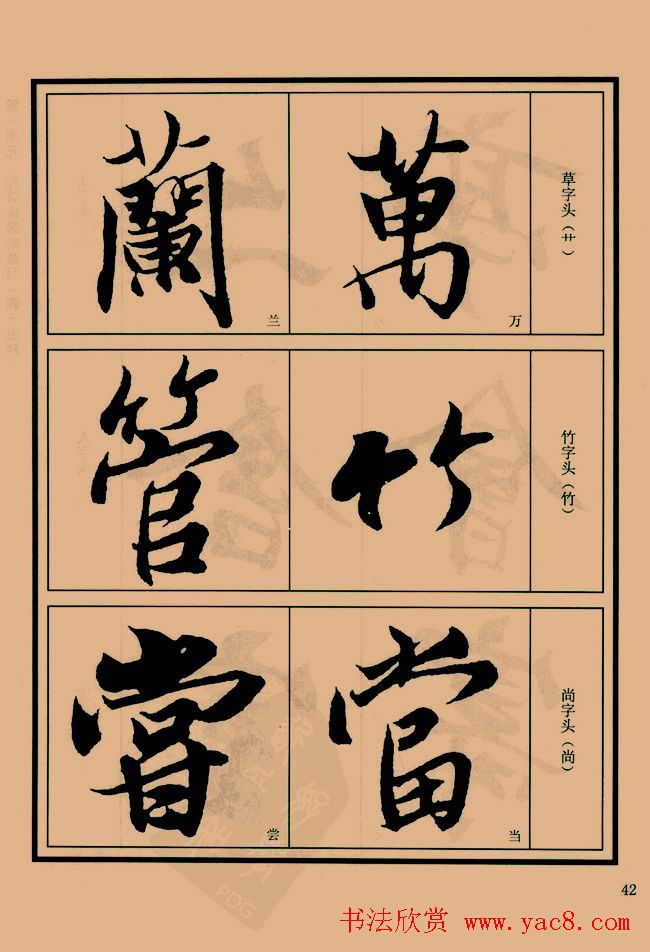 草字头（艹）
萬
万
蘭
兰
竹字头（竹）
竹
管
尚字头（尚）
當
当
嘗
尝
42
书法欣赏 www.yac8.com
PDG